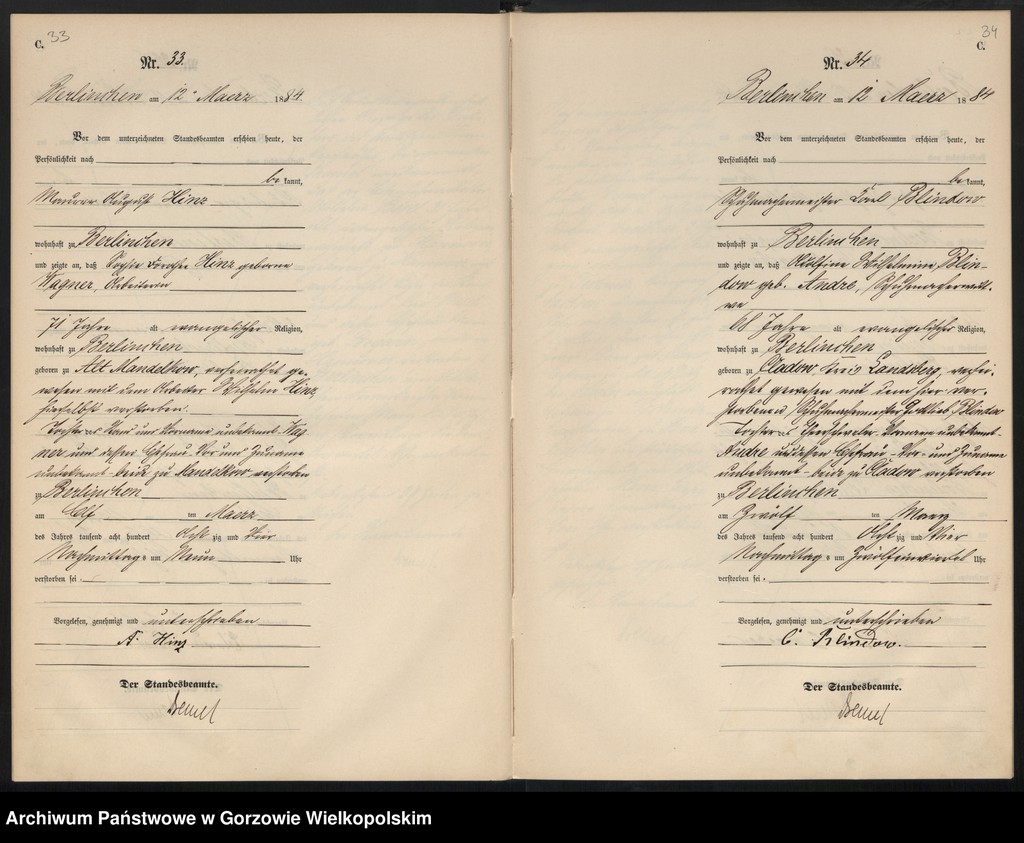 C. 33
Nr. 33.
Berlinchen am 12ᵗ Maerz 1884.
Vor dem unterzeichneten Standesbeamten erschien heute, der
Persönlichkeit nach
be kannt,
Maurer August Hinz
wohnhaft zu Berlinchen
und zeigte an, daß Sophie Dorothee Hinz geborene
Wagner, Arbeiterin
71 Jahre alt evangelischer Religion,
wohnhaft zu Berlinchen
geboren zu Alt Mandelkow, verheirathet ge-
wesen mit dem Arbeiter Wilhelm Hinz,
hierselbst verstorben.
Tochter des und Vorname unbekannt Wag
ner und dessen Ehefrau Vor und Zuname
unbekannt beide zu Mandelkow verstorben
zu Berlinchen
am Elf ten Maerz
des Jahres tausend acht hundert Acht zig und Vier
Nachmittags um Neun Uhr
verstorben sei.
Vorgelesen, genehmigt und unterschrieben
A. Hinz
Der Standesbeamte.
34
C.
Nr. 34
Berlinchen am 12 Maerz 1884
Vor dem unterzeichneten Standesbeamten erschien heute, der
Persönlichkeit nach
be kannt,
Schuhmachermeister Carl Blindow
wohnhaft zu Berlinchen
und zeigte an, daß Wilhelmine Blin-
dow geb. Andre, Schuhmacherwitt-
we
68 Jahre alt evangelischer Religion,
wohnhaft zu Berlinchen
geboren zu Cladow, Kreis Landsberg, verhei-
rathet gewesen mit dem hier ver-
storbenen Schuhmachermeister Gottlieb Blindow
Tochter des Vorname unbekannt
Andre und dessen Ehefrau Vor- und Zuname
unbekannt beide zu Cladow verstorben
zu Berlinchen
am Zwölf ten Maerz
des Jahres tausend acht hundert Acht zig und Vier
Nachmittags um Zwölfeinviertel Uhr
verstorben sei.
Vorgelesen, genehmigt und unterschrieben
C. Blindow.
Der Standesbeamte.
Archiwum Państwowe w Gorzowie Wielkopolskim